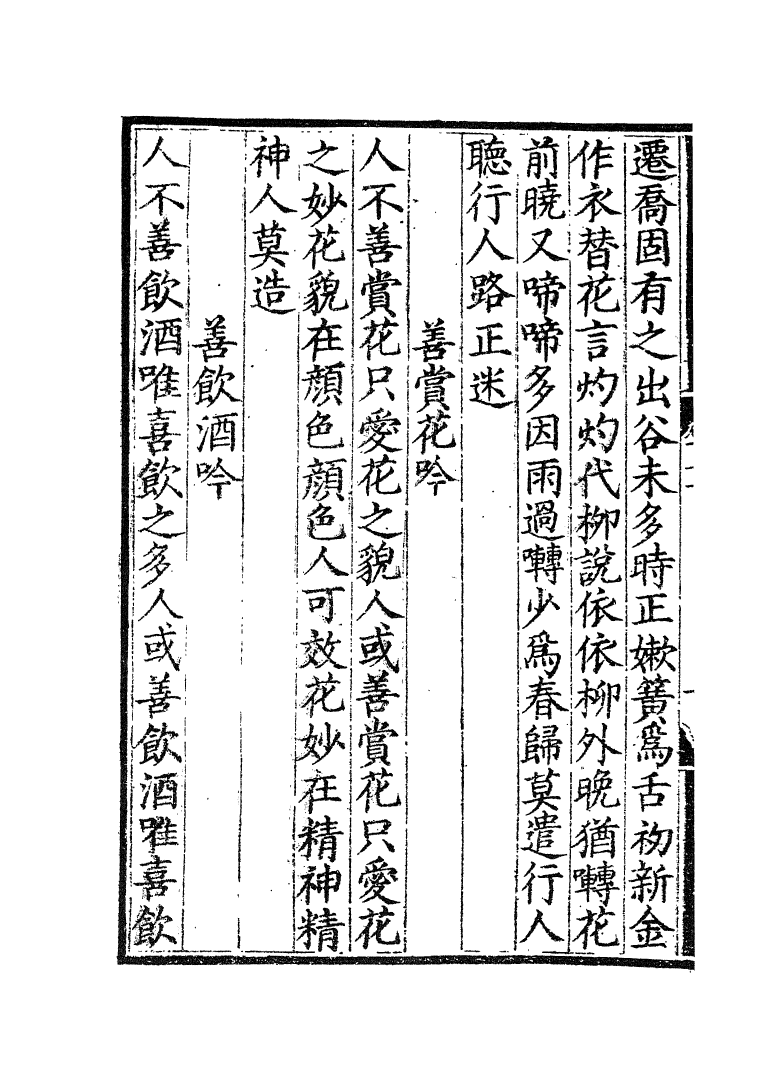 遷喬固有之出谷未多時正嫰簧爲舌初新金
作衣替花言灼灼代栁說依依栁外晚猶囀花
前曉又啼啼多因雨過囀少爲春歸莫遣行人
聽行人路正迷
善賞花吟
人不善賞花只愛花之貌人或善賞花只愛花
之妙花貌在顔色顔色人可效花妙在精神精
神人莫造
善飲酒吟
人不善飲酒唯喜飲之多人或善飲酒唯喜飲